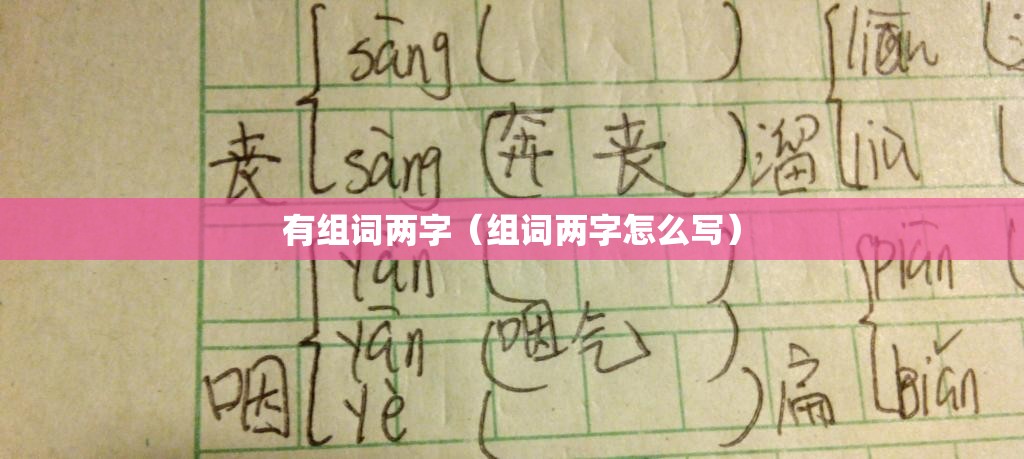 sāng ( ) liū (
丧 sāng (奔 丧) 溜 liù (
有组词两字（组词两字怎么写）
yān ( ) piān (
yàn (咽气)
咽 yè ( ) 扁 biǎn